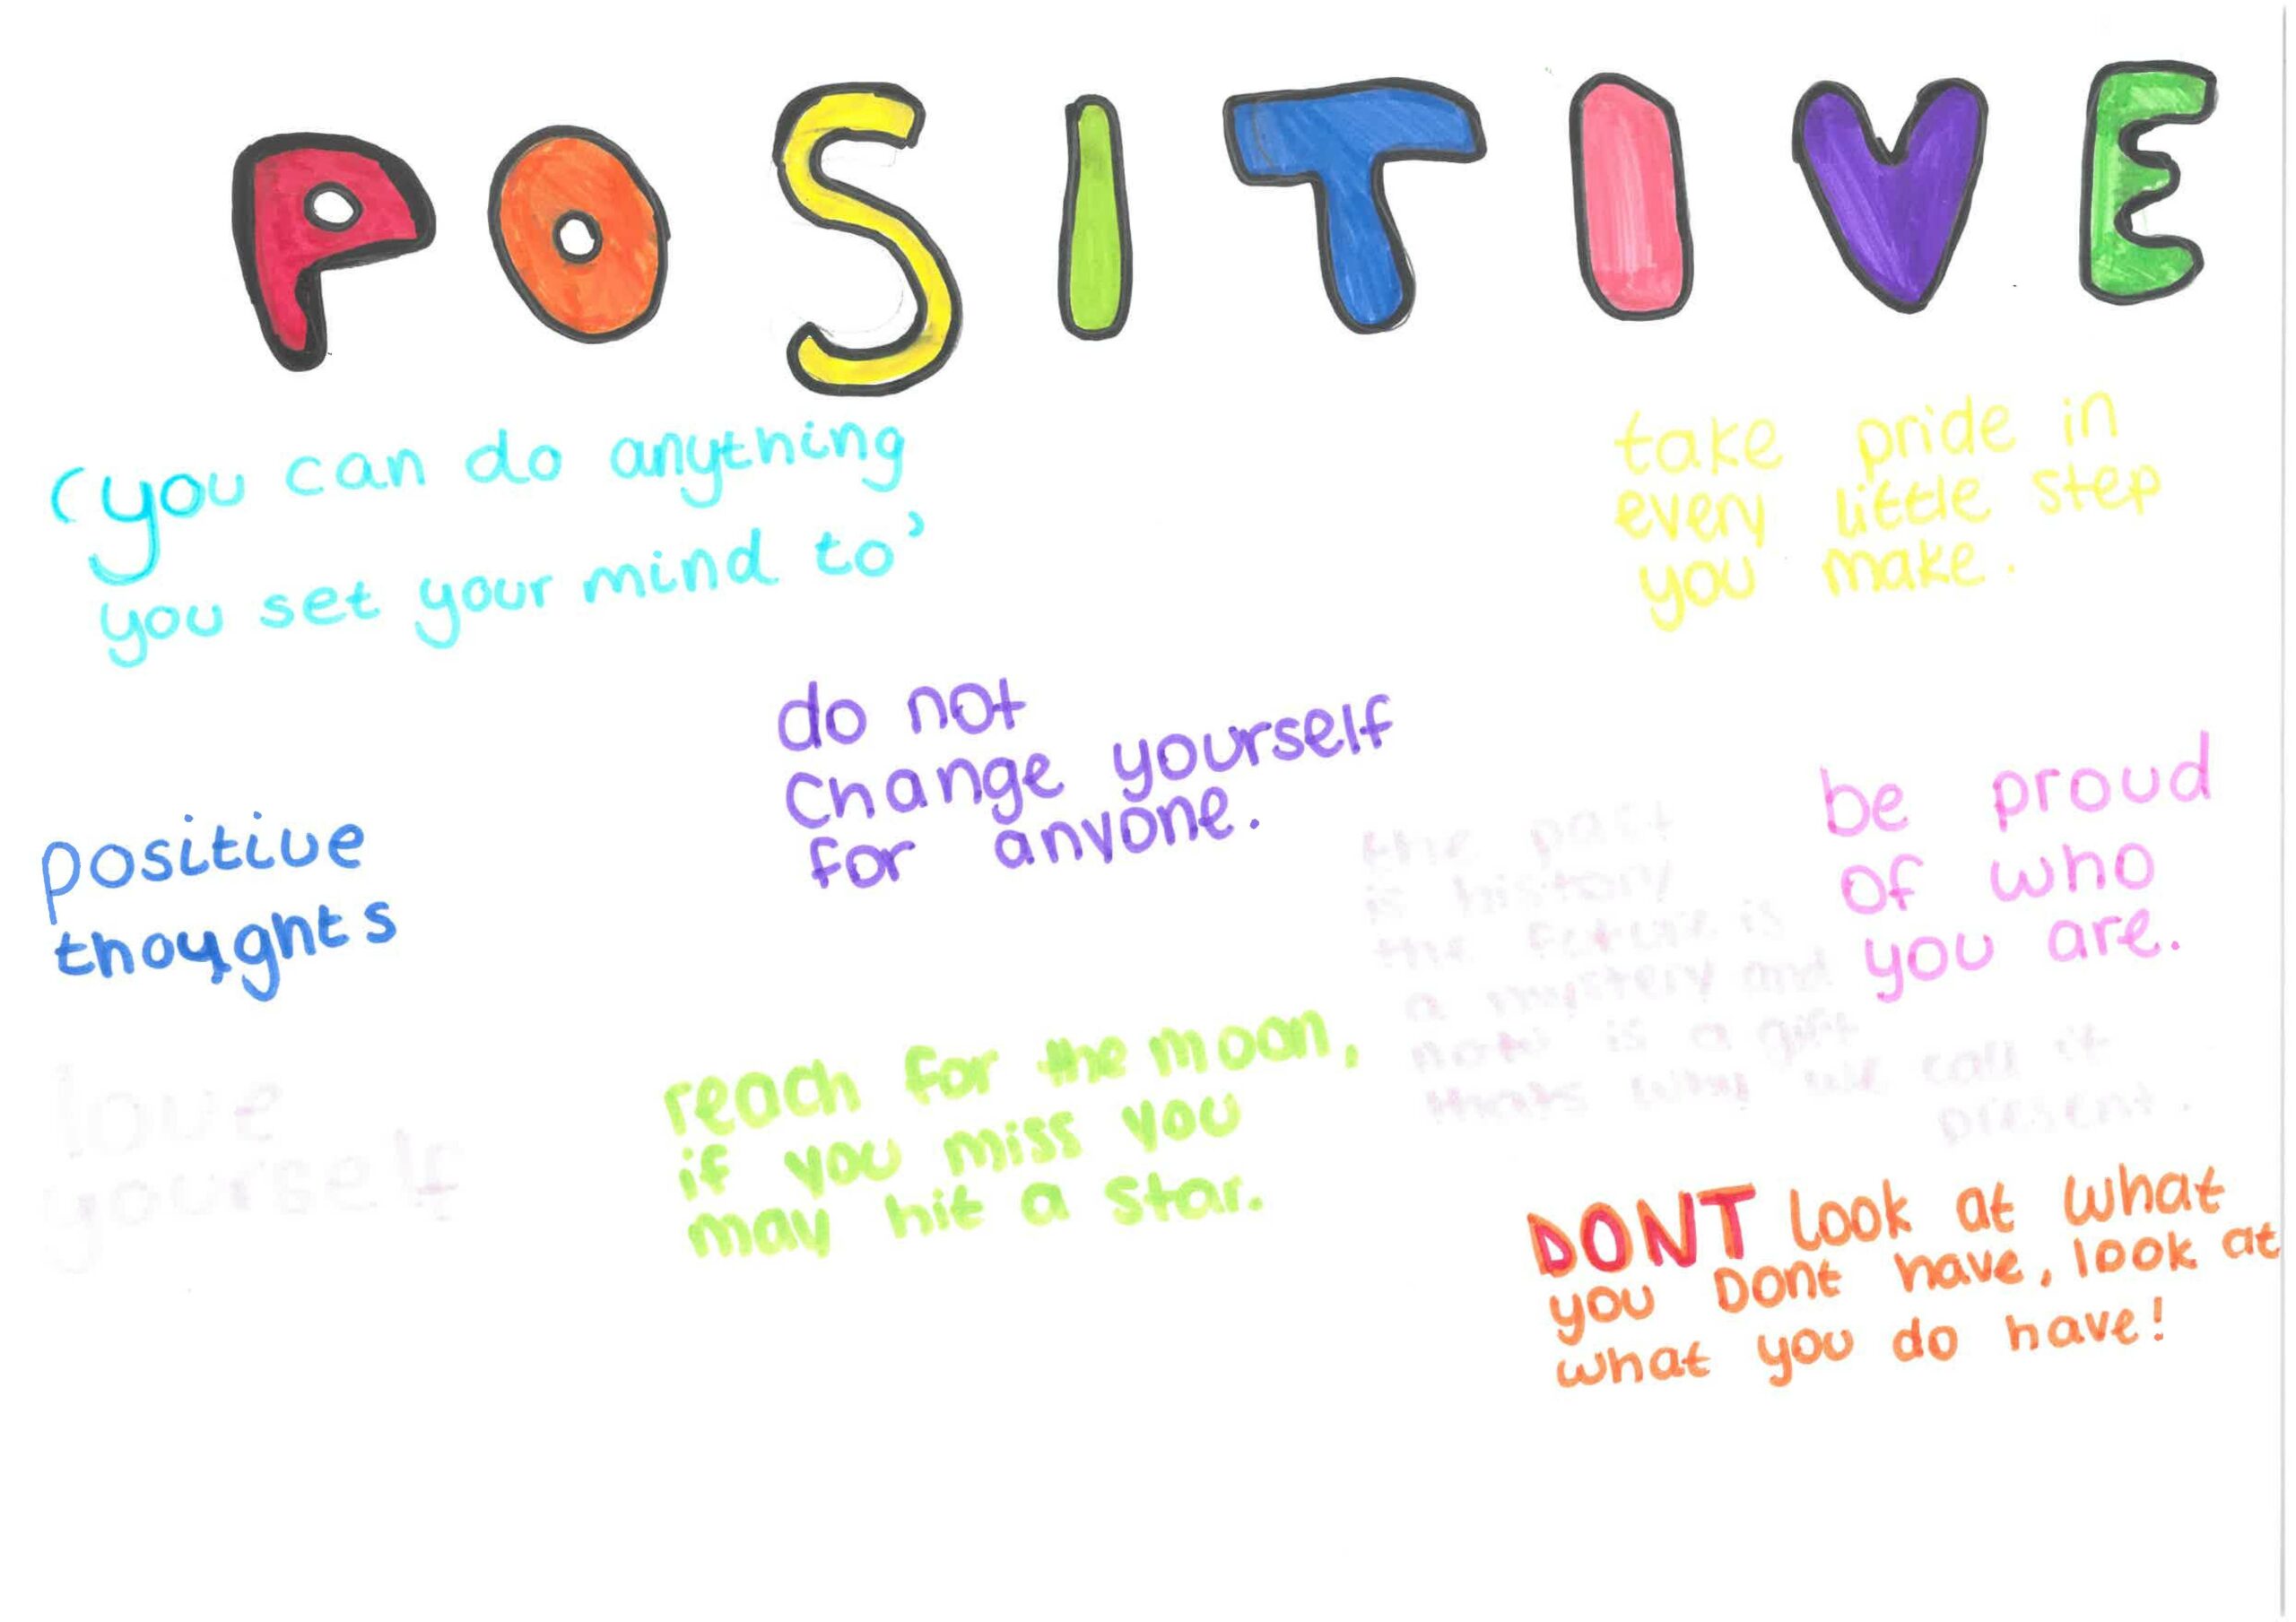 POSITIVE
'you can do anything
you set your mind to'
take pride in
every little step
you make.
do not
change yourself
for anyone.
be proud
of who
you are.
positive
thoughts
the past
is history
the future is
a mystery and
now is a gift
thats why we call it
present.
love
yourself
reach for the moon,
if you miss you
may hit a star.
DONT look at what
you Dont have, look at
what you do have!